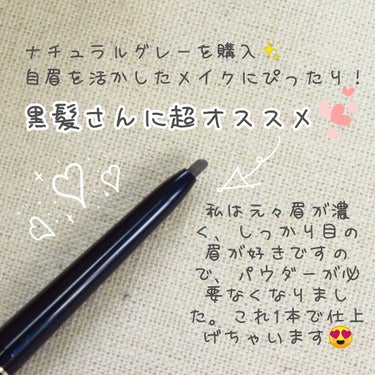 ナチュラルグレーを購入✨
自眉を活かしたメイクにぴったり！
黒髪さんに超オススメ
私は元々眉が濃
く、しっかり目の
眉が好きですの
で、パウダーが必
要なくなりまし
た。これ1本で仕上
げちゃいます😍